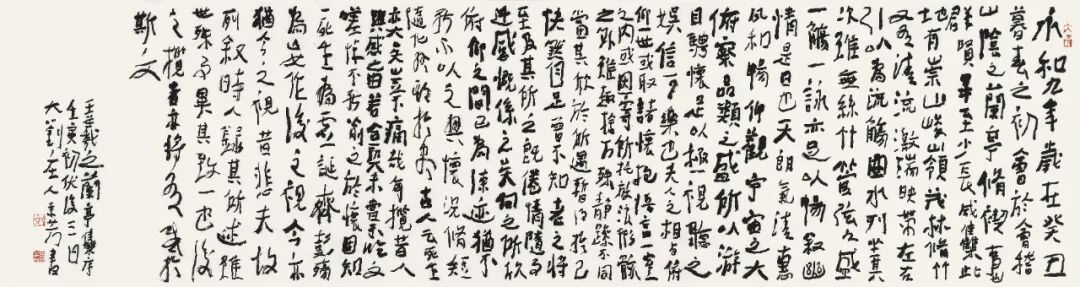 永和九年歲在癸丑
暮春之初會於會稽
山陰之蘭亭脩禊事
也羣賢畢至少長咸集此
地有崇山峻嶺茂林脩竹
又有清流激湍映帶左右
引以為流觴曲水列坐其
次雖無絲竹管弦之盛
一觴一詠亦足以暢敘幽
情是日也天朗氣清惠
風和暢仰觀宇宙之大
俯察品類之盛所以游
目騁懷足以極視聽之
娛信可樂也夫人之相與俯
仰一世或取諸懷抱悟言一室
之內或因寄所託放浪形骸
之外雖趣捨万殊靜躁不同
當其欣於所遇暫得於己
快然自足曾不知老之將
至及其所之既倦情隨事
遷感慨係之矣向之所欣
俯仰之間已為陳迹猶不
能不以之興懷況脩短
隨化終期於盡古人云死生
亦大矣豈不痛哉每攬昔人
興感之由若合一契未嘗不臨文
嗟悼不能喻之於懷固知
一死生為虛誕齊彭殤
為妄作後之視今亦
猶今之視昔悲夫故
列敘時人錄其所述雖
世殊事異其致一也後
之攬者亦將有感於
斯文
王羲之蘭亭集序
壬寅初伏後三日
大劉人書